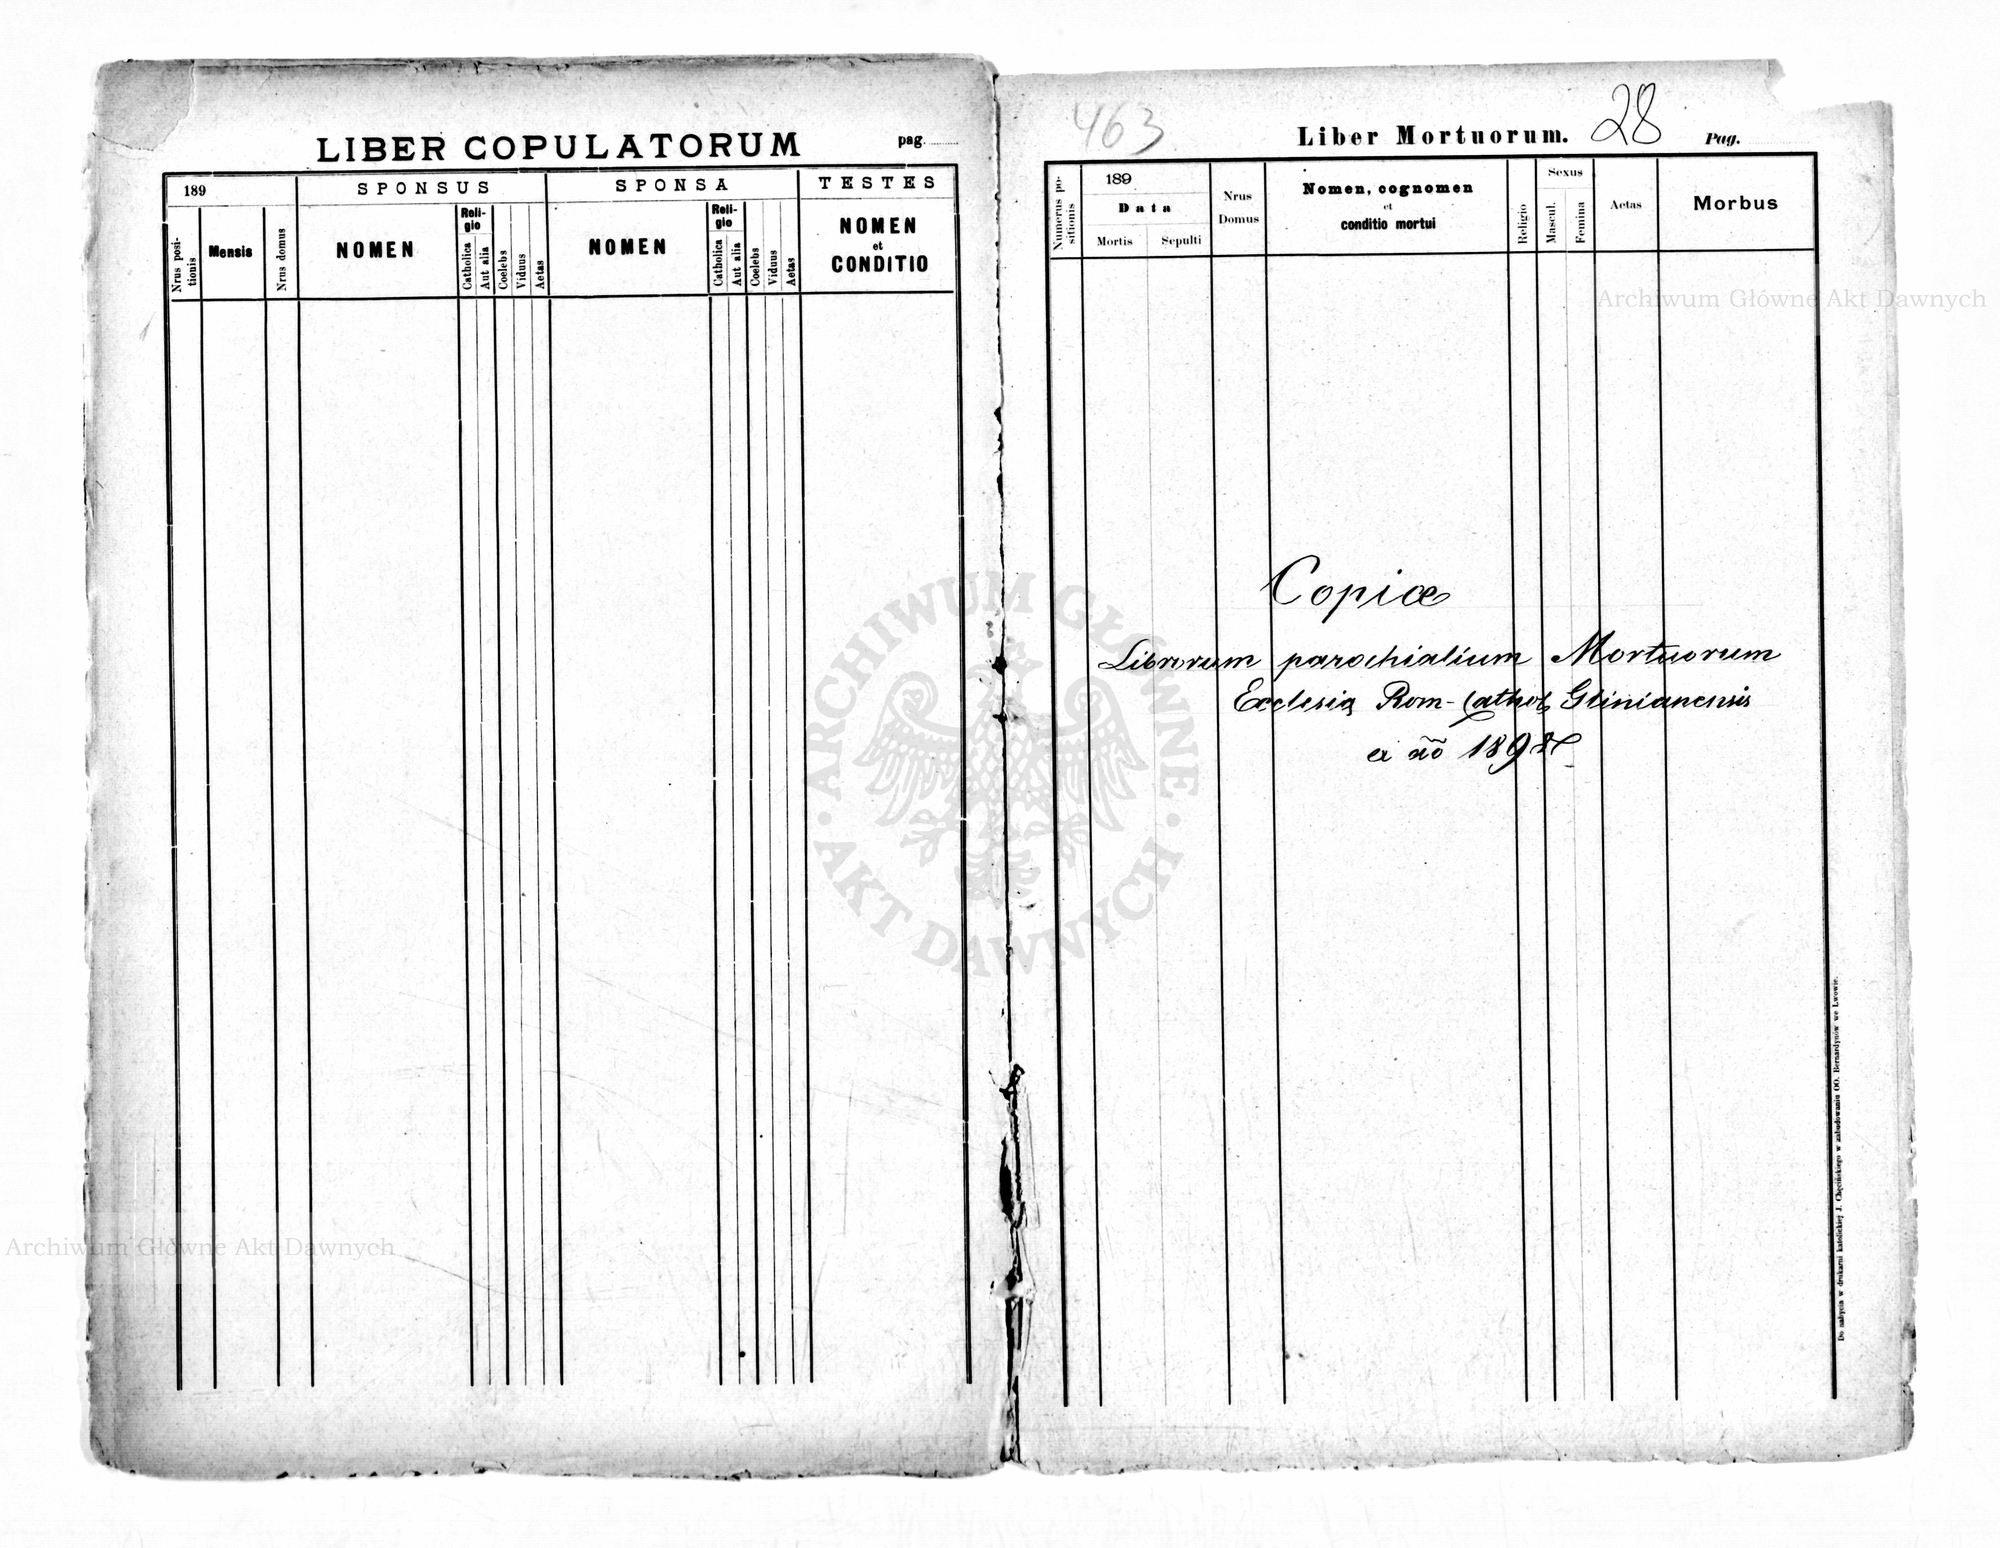 LIBER COPULATORUM
pag.
189
SPONSUS
SPONSA
TESTES
Nrus posi-
tionis
Mensis
Nrus domus
NOMEN
Reli-
gio
Catholica
Aut alia
Coelebs
Viduus
Aetas
NOMEN
Reli-
gio
Catholica
Aut alia
Coelebs
Viduus
Aetas
NOMEN
et
CONDITIO
463
Liber Mortuorum.
28
Pag.
Numerus po-
sitionis
189
Data
Mortis
Sepulti
Nrus
Domus
Nomen, cognomen
et
conditio mortui
Religio
Sexus
Mascul.
Femina
Aetas
Morbus
Copiæ
Librorum parochialium Mortuorum
Ecclesiæ Rom-Cathol Glinianensis
Do nabycia w drukarni katolickiej J. Chęcińskiego w zabudowaniu OO. Bernardynów we Lwowie.
Archiwum Główne Akt Dawnych
Archiwum Główne Akt Dawnych
ARCHIWUM GŁÓWNE
AKT DAWNYCH